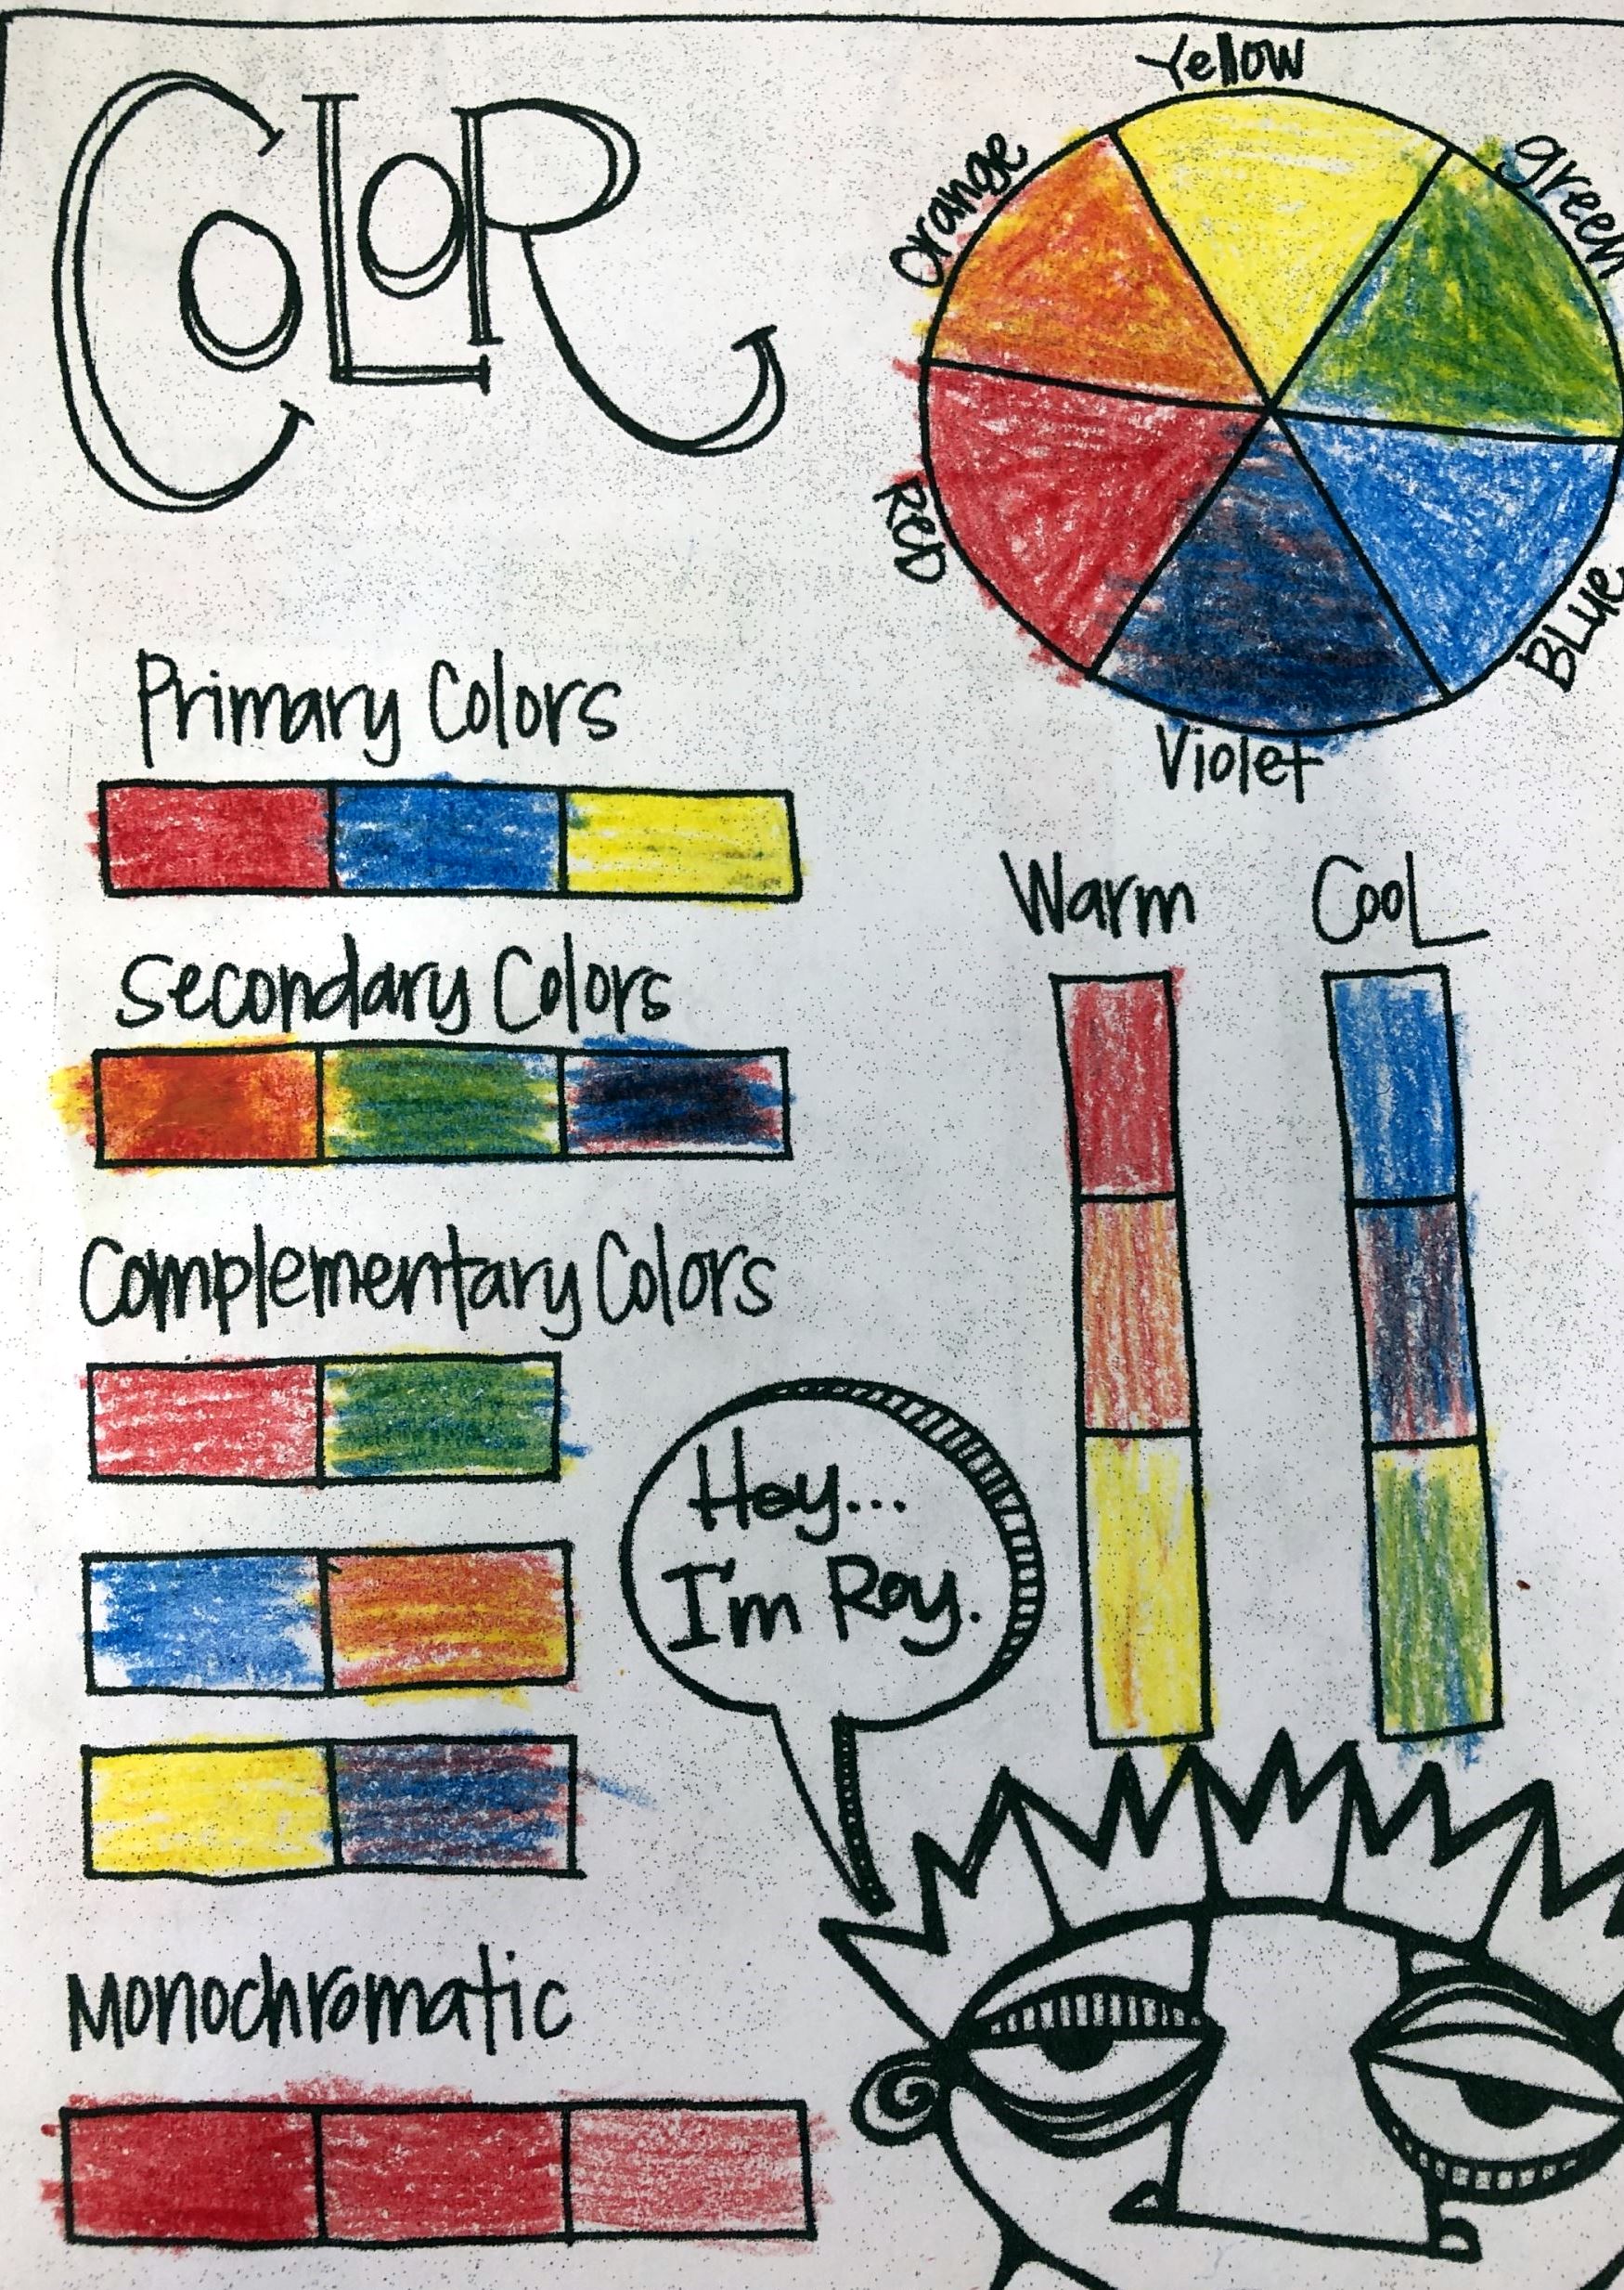 COLOR
Yellow
Orange
green
Red
BLue
Violet
Primary Colors
Warm
CooL
Secondary Colors
Complementary Colors
Hey...
I'm Roy.
Monochromatic